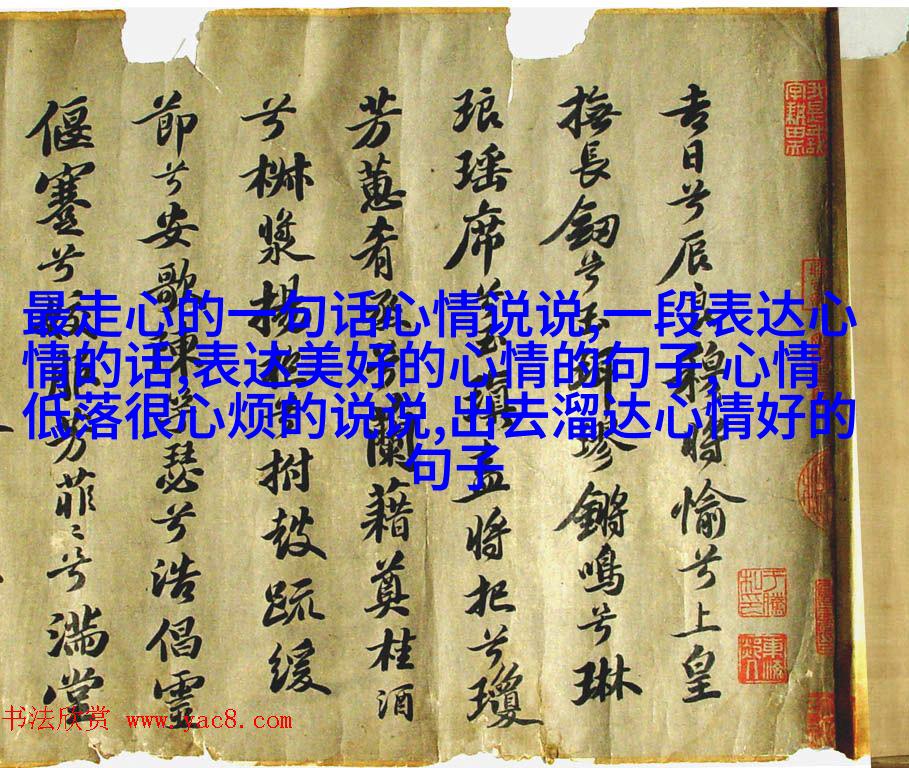 最走心的一句话心情说说,一段表达心
情的话,表达美好的心情的句子,心情
低落很心烦的说说,出去溜达心情好的
句子
吉日兮辰良穆將愉兮上皇
撫長劔兮玉珥璆鏘鳴兮琳
琅瑶席兮玉瑱盍將把兮瓊
芳蕙肴烝兮蘭藉奠桂酒
兮椒漿揚枹兮拊鼓疏緩
節兮安歌陳竽瑟兮浩倡靈
偃蹇兮姣服芳菲〻兮滿堂
书法欣赏 www.yac8.com